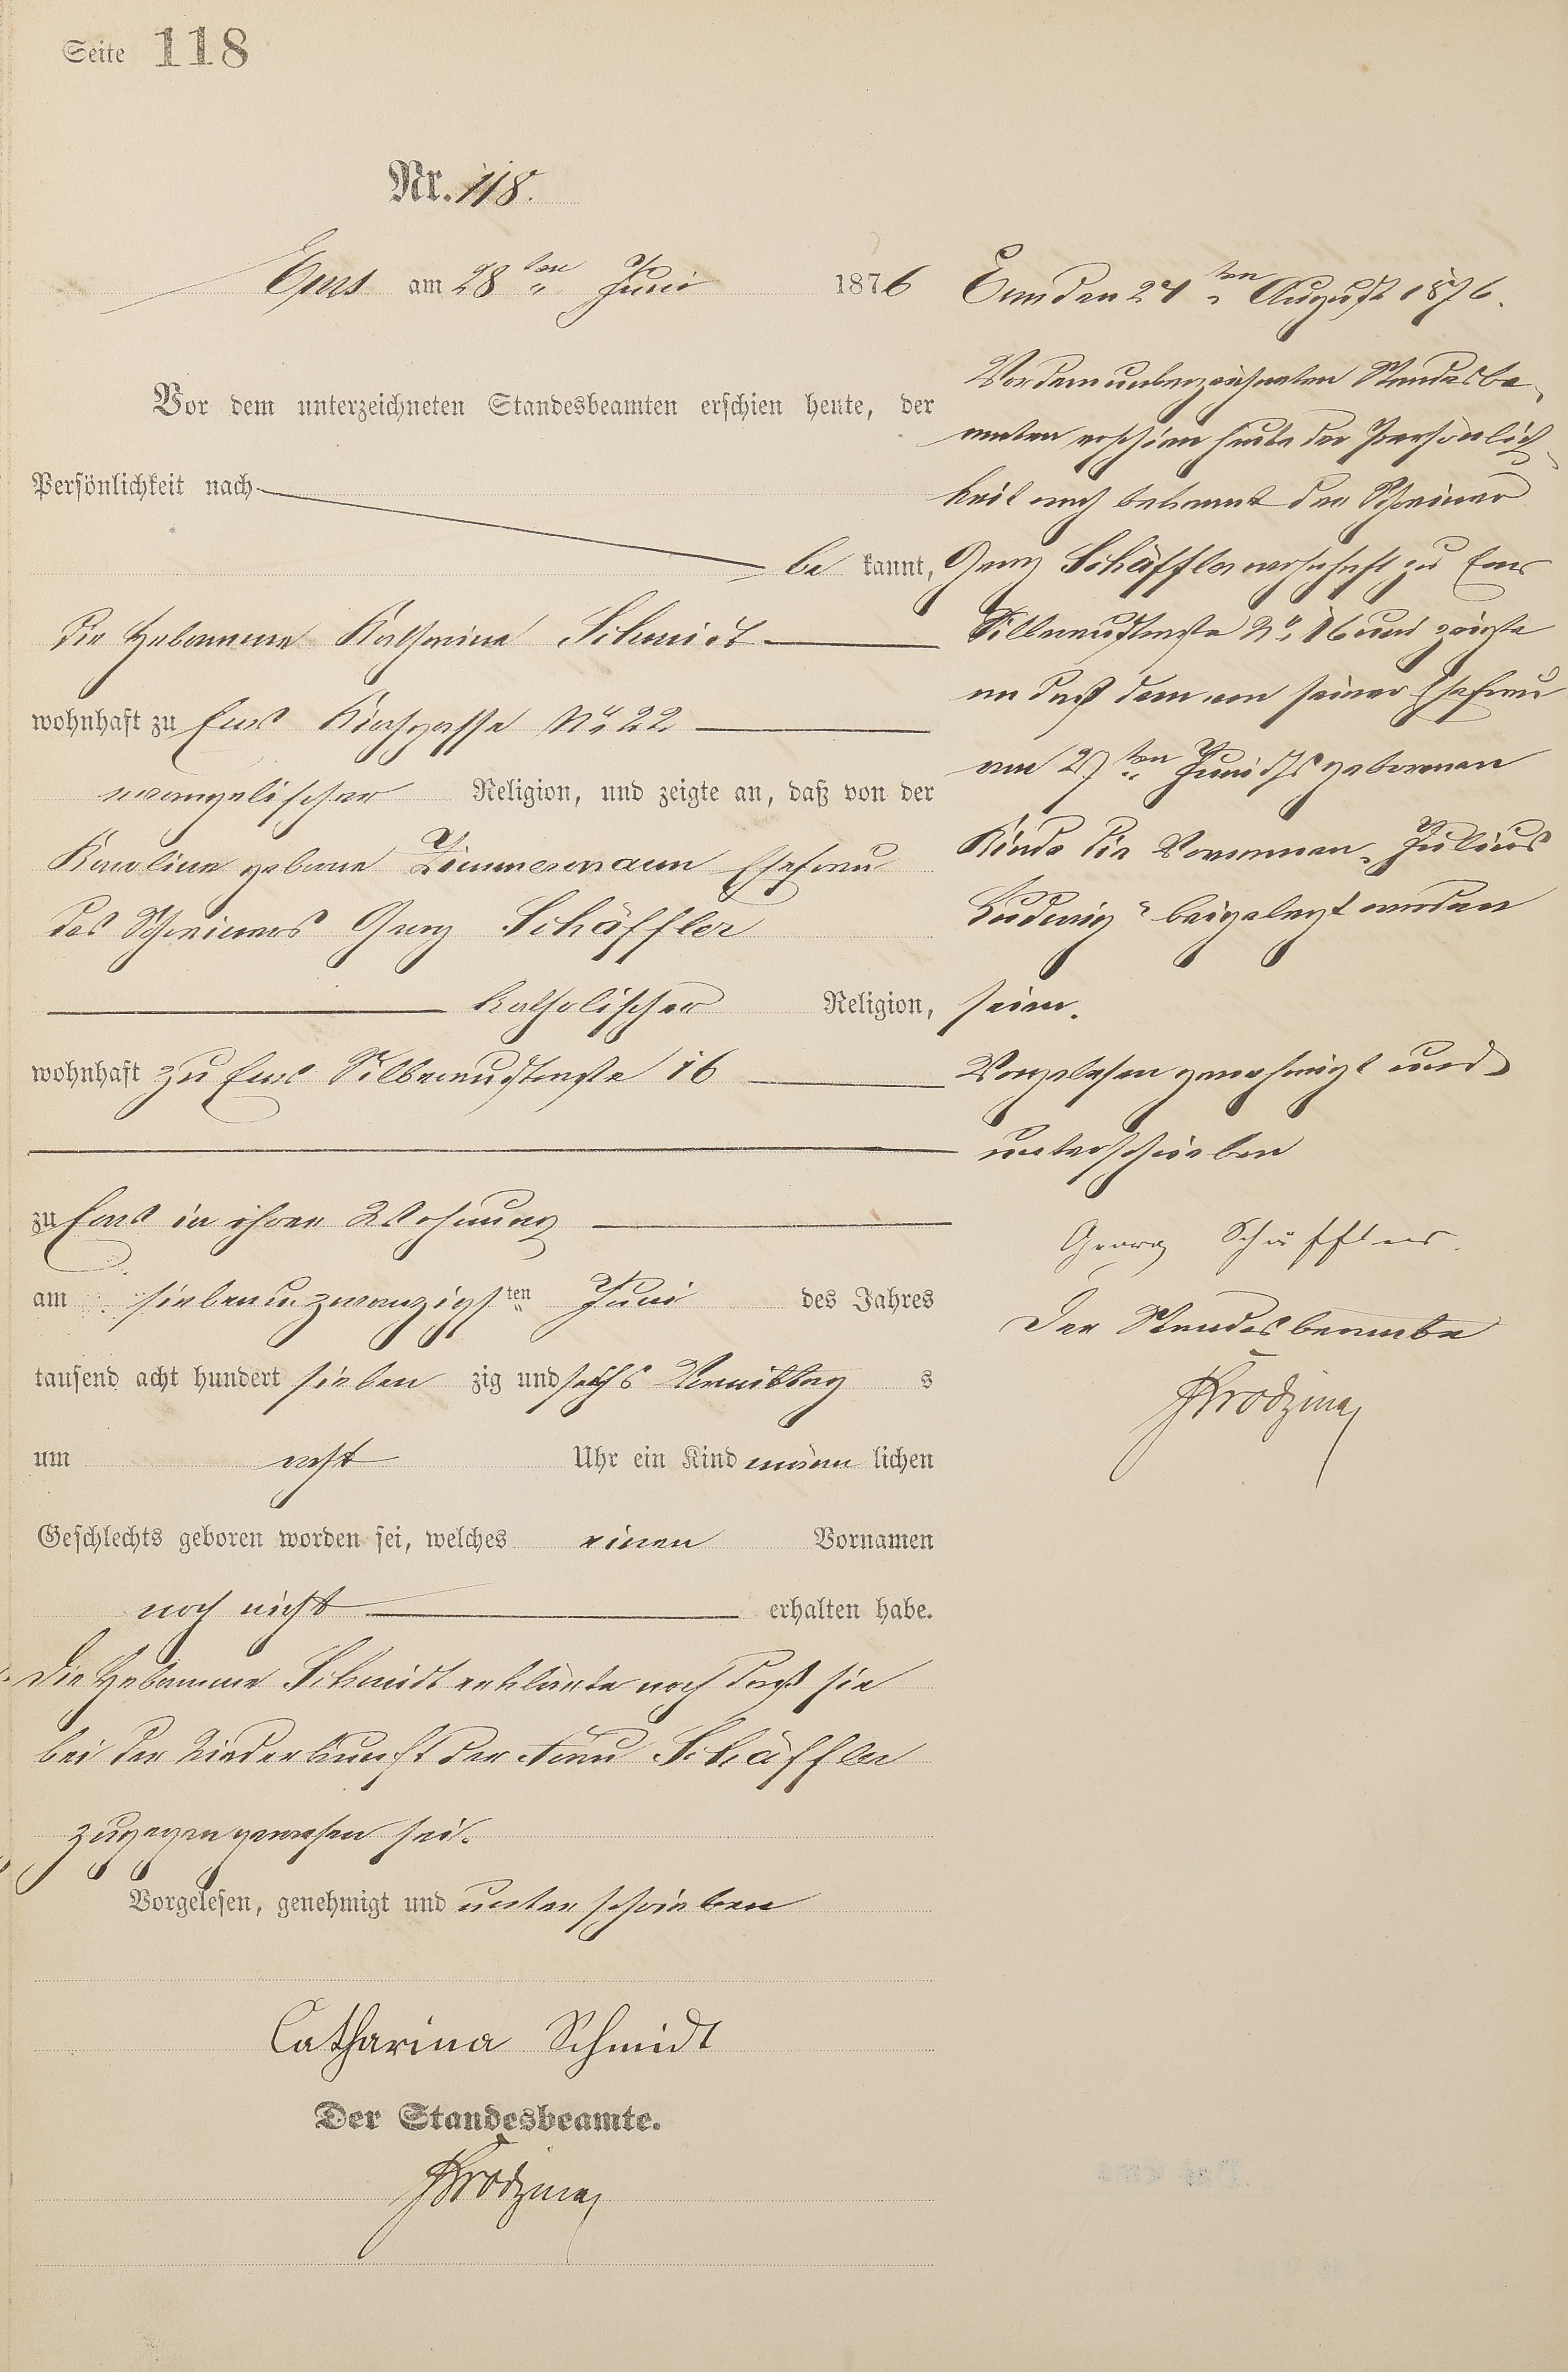 Seite 118
Nr. 118.
Ems am 28ten Juni 1876
Vor dem unterzeichneten Standesbeamten erschien heute, der
Persönlichkeit nach
be kannt,
die Hebamme Katharina Schmidt
wohnhaft zu Ems Kirchgasse No 22
evangelischer Religion, und zeigte an, daß von der
Karoline geborne Zimmermann Ehefrau
des Schreiners Georg Schäffler
katholischer Religion,
wohnhaft zu Ems Silberaustraße 16
zu Ems in ihrer Wohnung
am siebenundzwanzigsten Juni des Jahres
tausend acht hundert sieben zig und sechs Vormittag s
um acht Uhr ein Kind männ lichen
Geschlechts geboren worden sei, welches einen Vornamen
noch nicht erhalten habe.
Die Hebamme Schmidt erklärte noch daß sie
bei der Niederkunft der Frau Schäffler
zugegen gewesen sei.
Vorgelesen, genehmigt und unterschrieben
Catharina Schmidt
Der Standesbeamte.
Ems den 24ten August 1876.
Vor dem unterzeichneten Standesbe-
amten erschien heute der Persönlich-
keit nach bekannt der Schreiner
Georg Schäffler wohnhaft zu Ems
Silberaustraße No 16 und zeigte
an daß dem von seiner Ehefrau
am 27ten Juni d Js geborenen
Kinde die Vornamen „Julius
Ludwig" beigelegt worden
seien.
Vorgelesen genehmigt und
unterschrieben
Georg Schäffler.
Der Standesbeamte